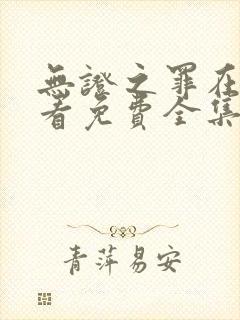 無證之罪在
看免費全集
青萍易安